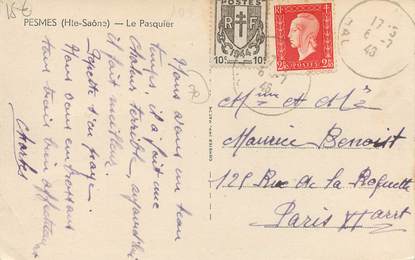 PESMES (Hte-Saône) — Le Pasquier
POSTES
RF
1944
10c 10c
2F
POSTES
17
6-7
43
Nous avons un beau
temps, il a fait une
chaleur terrible, aujourd'hui
il fait meilleur.
Nous vous embrassons
tous trois bien affectueux
Charles
Mme et Mr
Maurice Benoist
125 Rue de la Roquette
Paris XI arrt